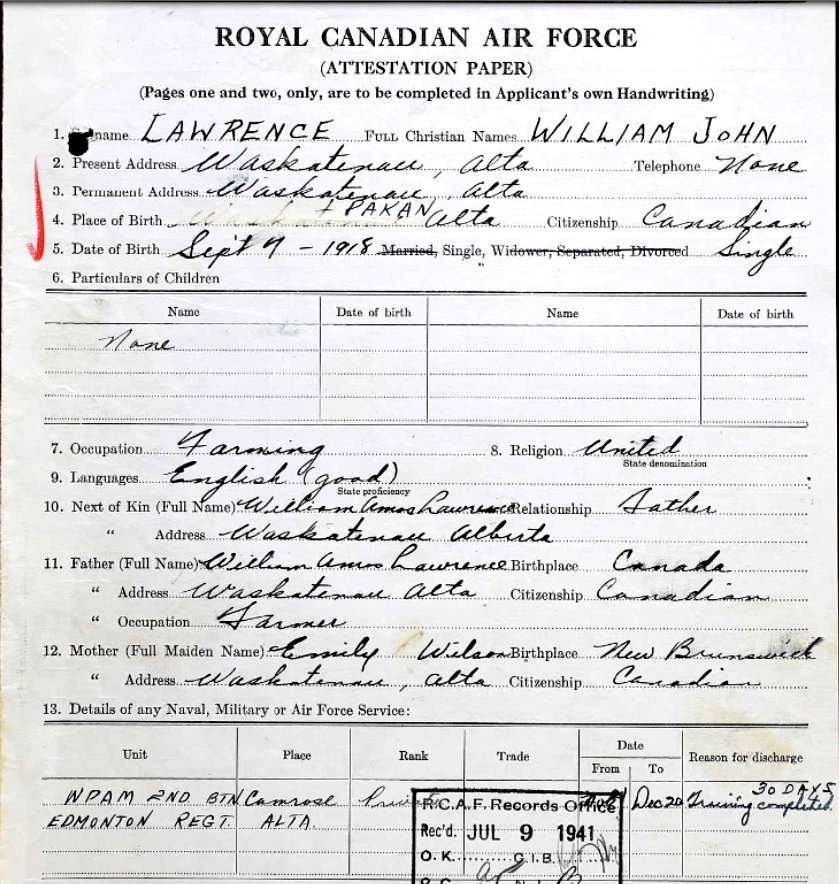 ROYAL CANADIAN AIR FORCE
(ATTESTATION PAPER)
(Pages one and two, only, are to be completed in Applicant's own Handwriting)
1. name LAWRENCE FULL Christian Names WILLIAM JOHN
2. Present Address Waskatenau, Alta Telephone None
3. Permanent Address Waskatenau, Alta
4. Place of Birth PAKAN Alta Citizenship Canadian
5. Date of Birth Sept 9 - 1918 Married, Single, Widower, Separated, Divorced Single
6. Particulars of Children
Name Date of birth Name Date of birth
None
7. Occupation Farming 8. Religion United
State denomination
9. Languages English (good)
State proficiency
10. Next of Kin (Full Name) William Amos Lawrence Relationship Father
" Address Waskatenau Alberta
11. Father (Full Name) William Amos Lawrence Birthplace Canada
" Address Waskatenau Alta Citizenship Canadian
" Occupation Farmer
12. Mother (Full Maiden Name) Emily Wilson Birthplace New Brunswick
" Address Waskatenau, Alta Citizenship Canadian
13. Details of any Naval, Military or Air Force Service:
Unit Place Rank Trade Date Reason for discharge
From To
WPAM 2ND BTN Camrose Private Dec 20 30 DAYS Training completed.
EDMONTON REGT. ALTA.
R.C.A.F. Records Office
Rec'd. JUL 9 1941
O. K. C.I.B.